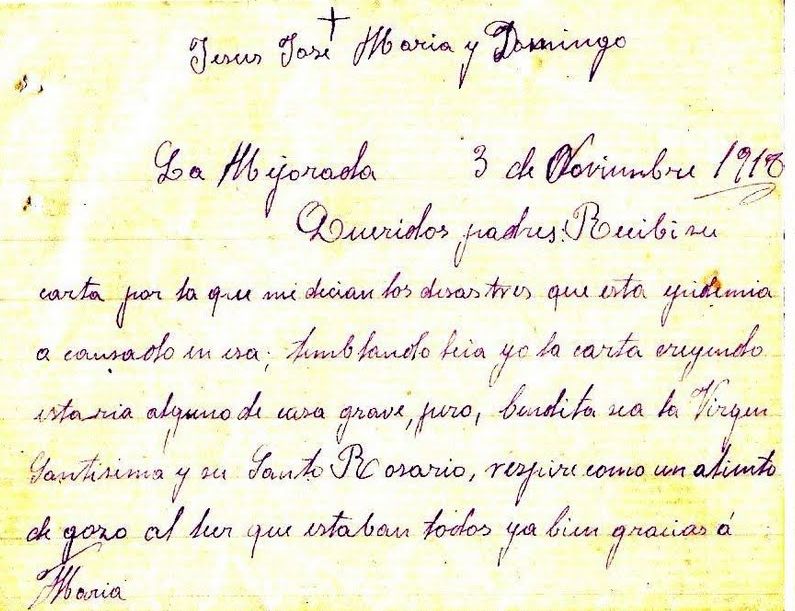 Jesus José Maria y Domingo
La Mejorada 3 de Noviembre 1918
Queridos padres: Recibi su
carta por la que me decian los desastres que esta epidemia
a causado en esa; temblando leia yo la carta creyendo
estaria alguno de casa grave, pero, bendita sea la Virgen
Santisima y su Santo Rosario, respire como un aliento
de gozo al leer que estaban todos ya bien gracias á
Maria